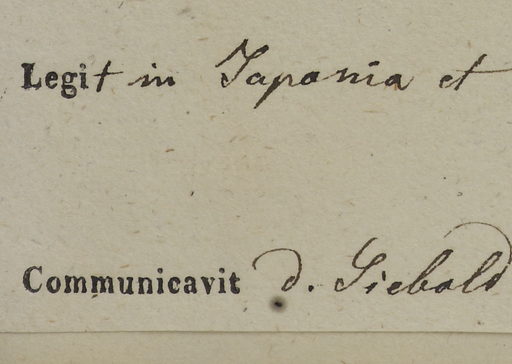 Legit in Japonia et
Communicavit d. Siebold